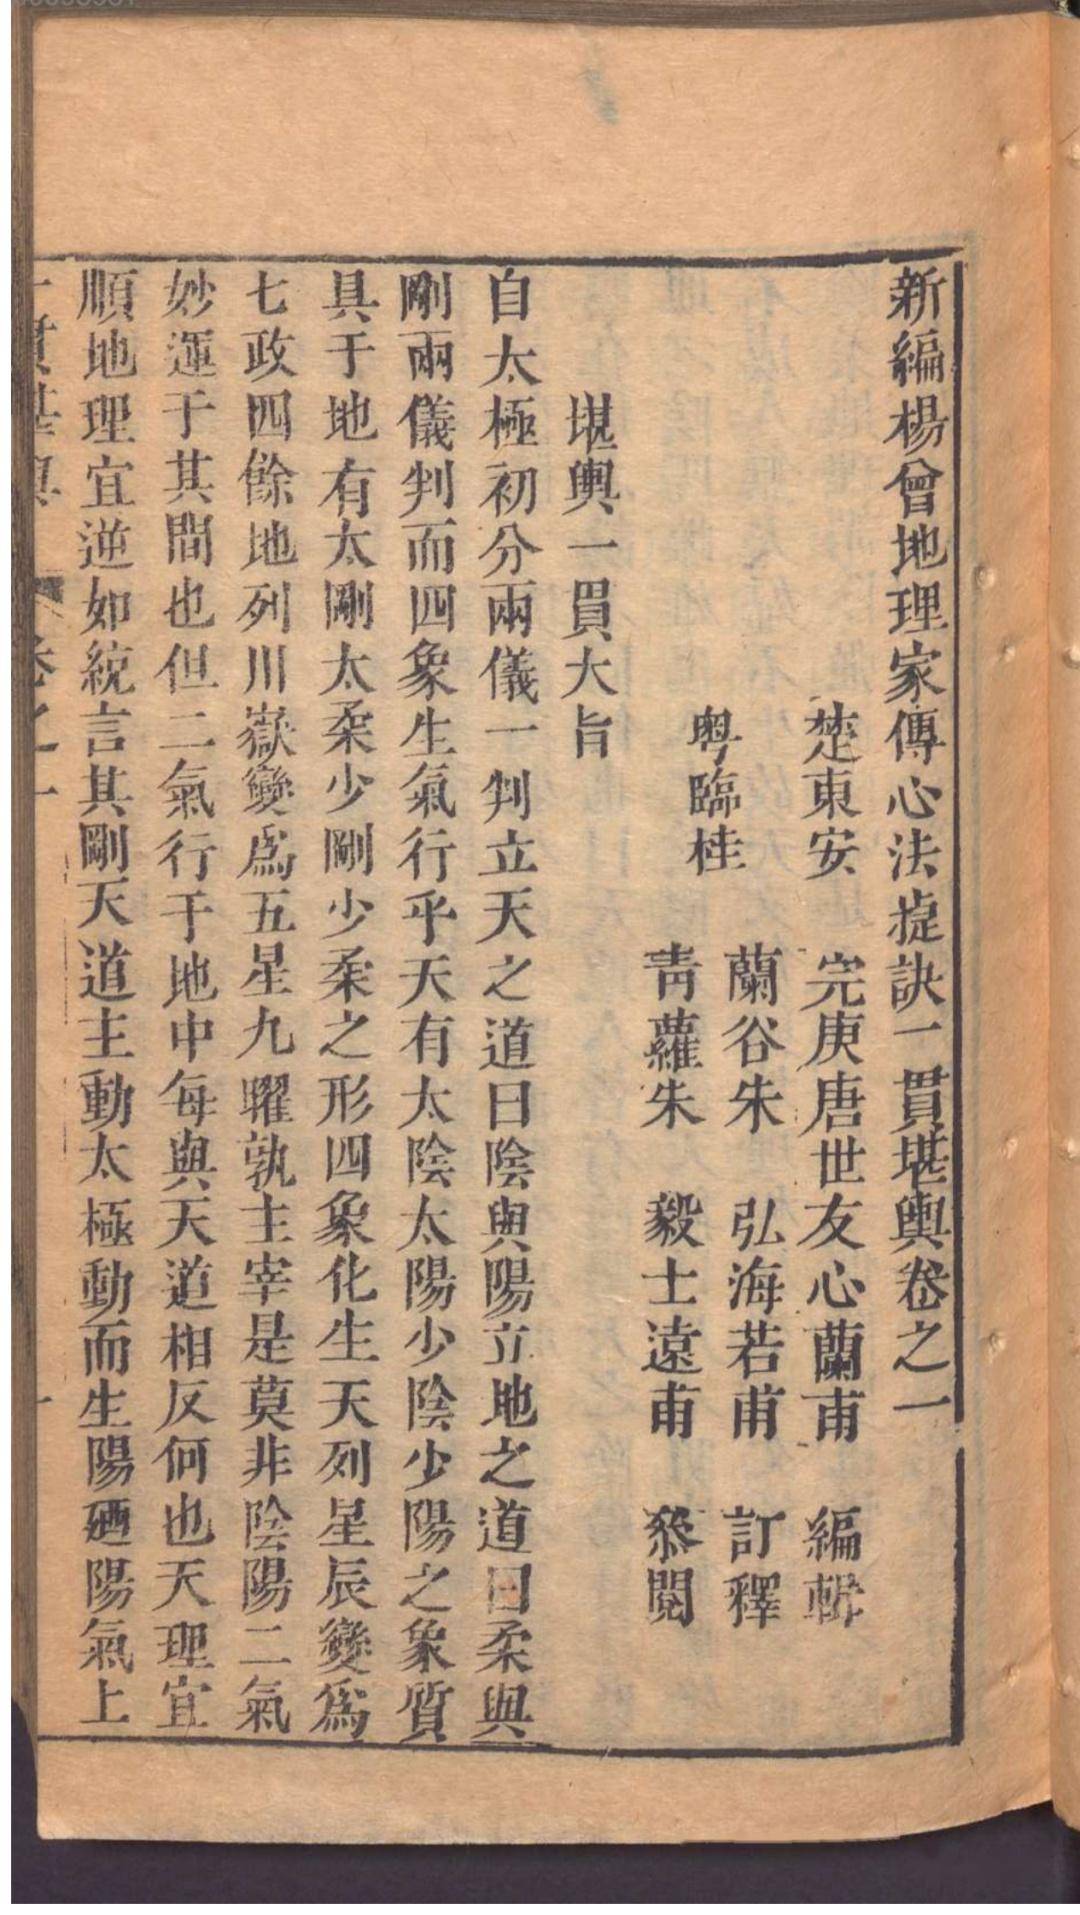 新編楊曾地理家傳心法㨗訣一貫堪輿卷之一
楚東安　完庚唐世友心蘭甫　編輯
蘭谷朱　弘海若甫　訂釋
粵臨桂
青蘿朱　毅士遠甫　叅閱
堪輿一貫大旨
自太極初分兩儀一判立天之道曰陰與陽立地之道曰柔與
剛兩儀判而四象生氣行乎天有太陰太陽少陰少陽之象質
具于地有太剛太柔少剛少柔之形四象化生天列星辰變爲
七政四餘地列川嶽變爲五星九曜孰主宰是莫非陰陽二氣
妙運于其間也但二氣行于地中每與天道相反何也天理宜
順地理宜逆如統言其剛天道主動太極動而生陽廼陽氣上
一貫堪輿　卷之一　一